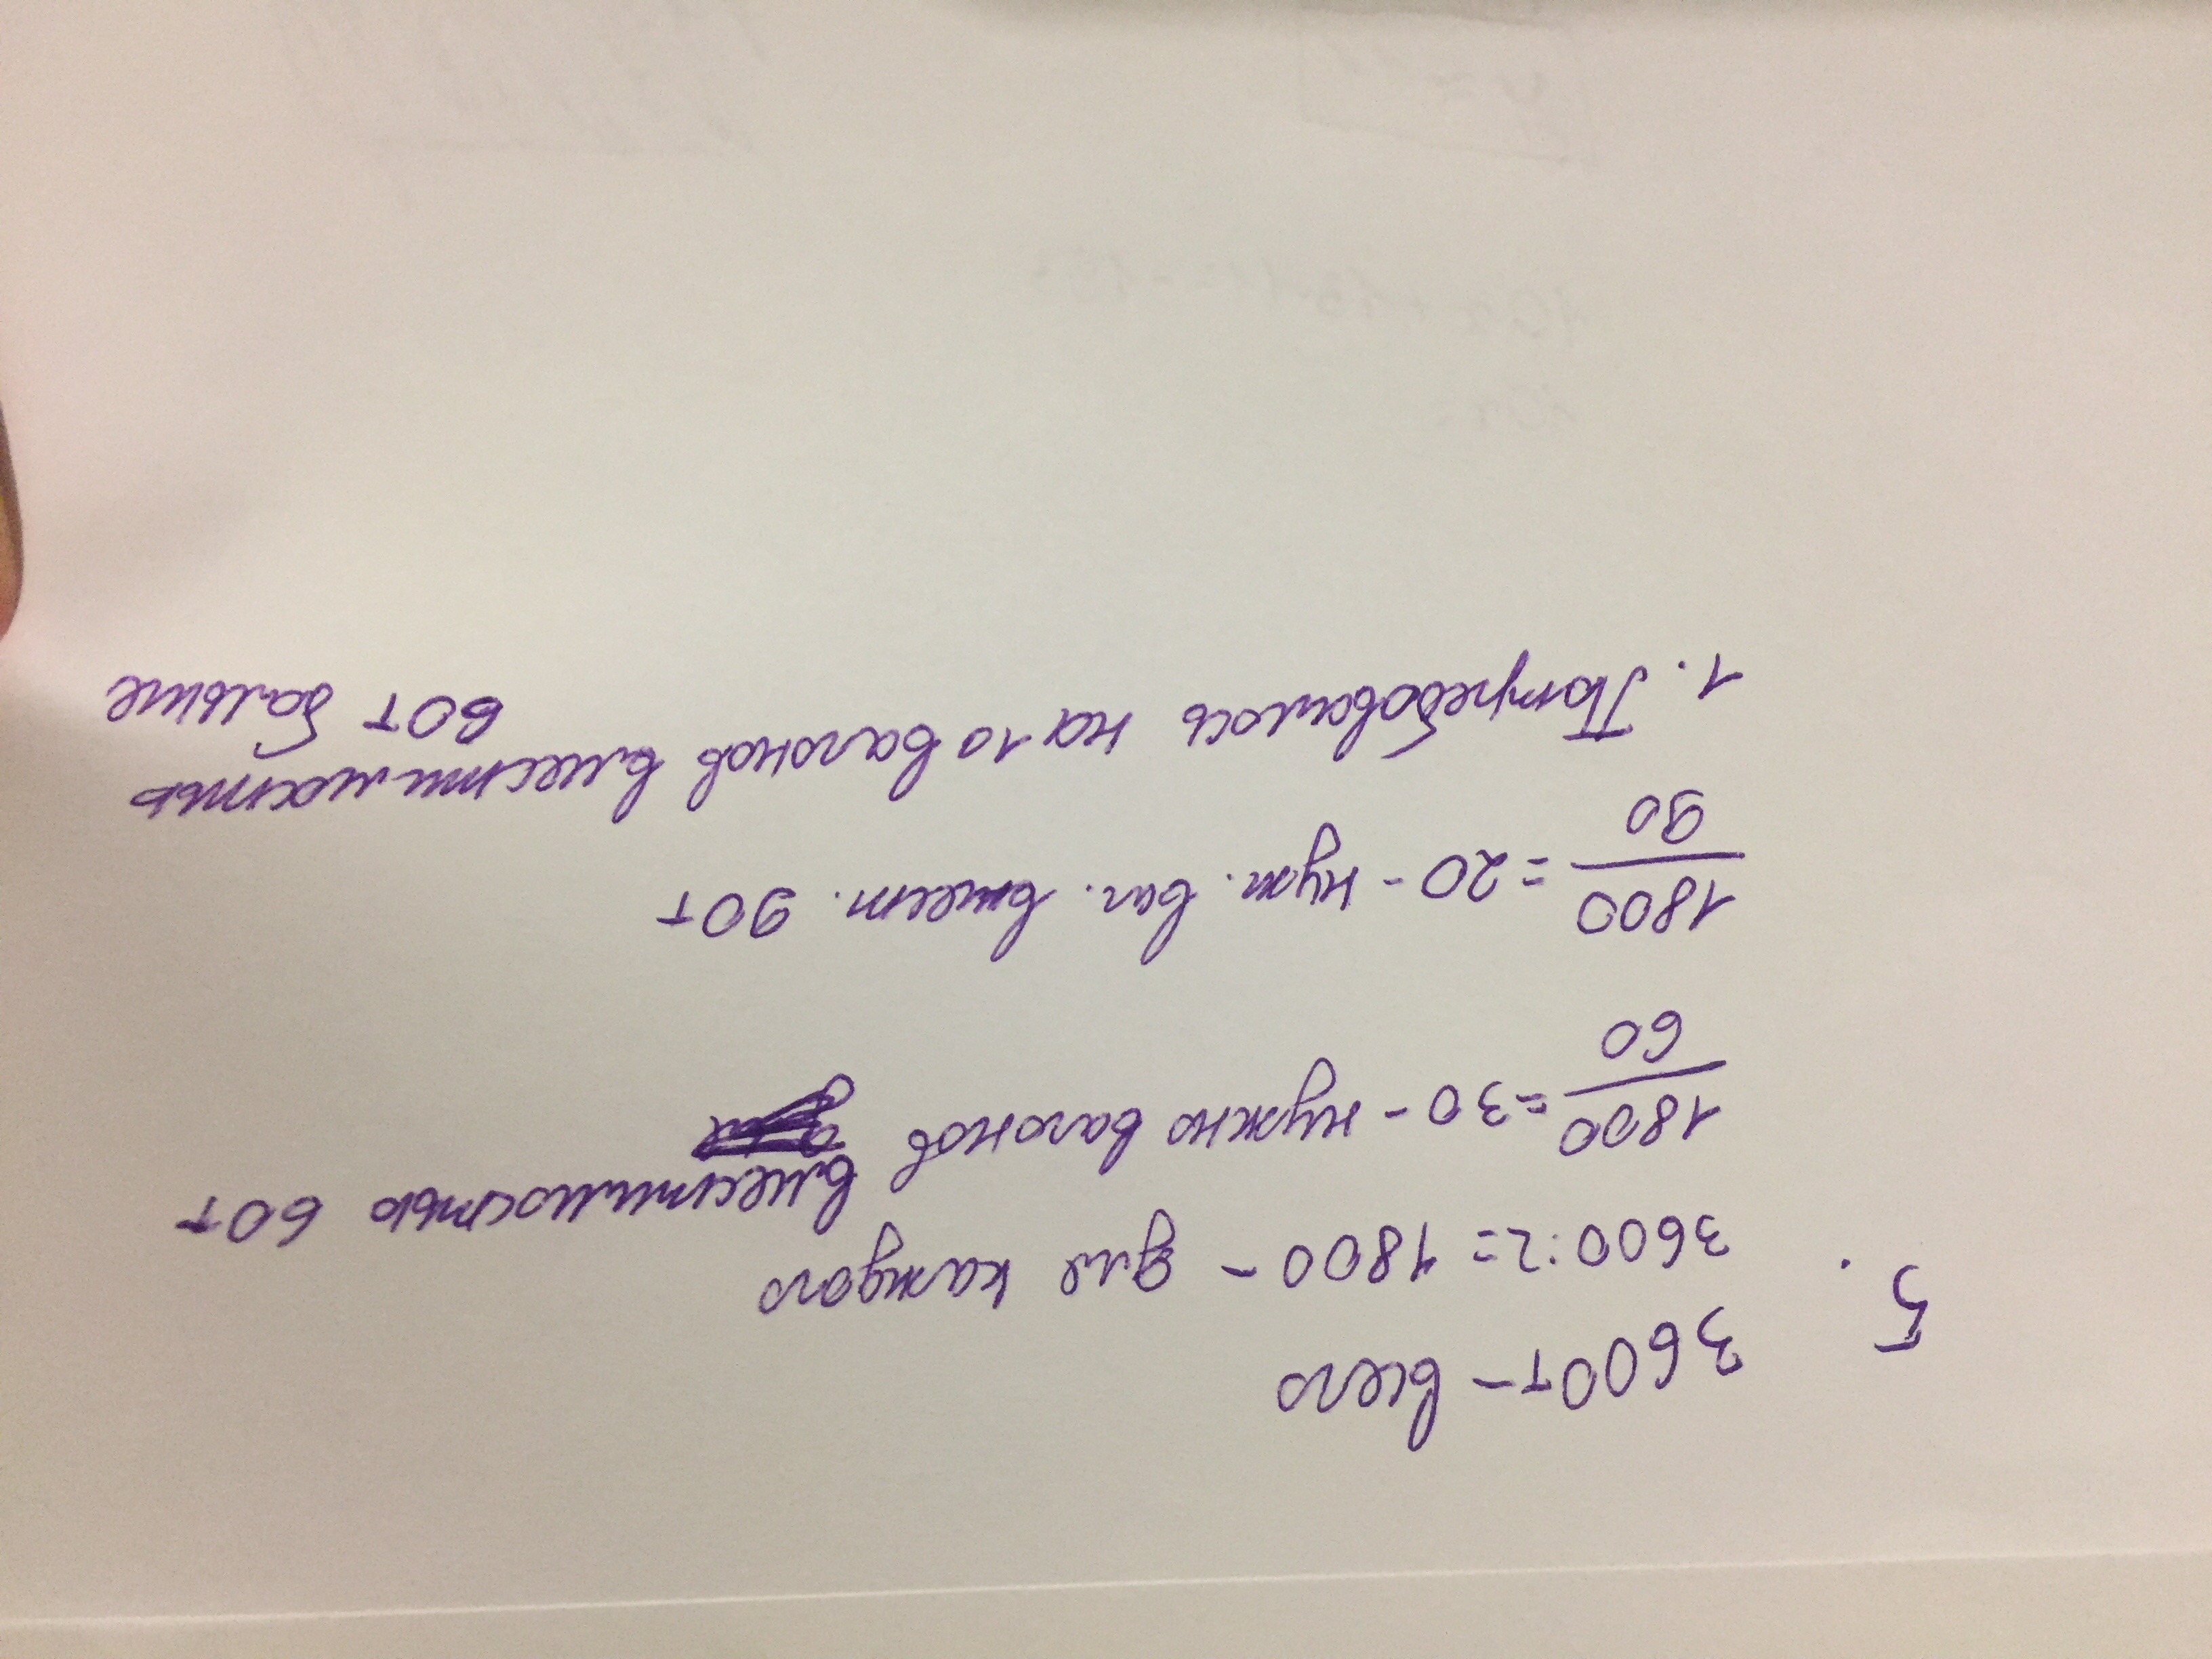 5.
3600т - всего
3600:2= 1800 - для каждого
1800/60 =30 - нужно вагонов вместимостью 60т
1800/90 =20 - нуж. ваг. вмест. 90т
1. Потребовалось на 10 вагонов вместимостью
60т больше